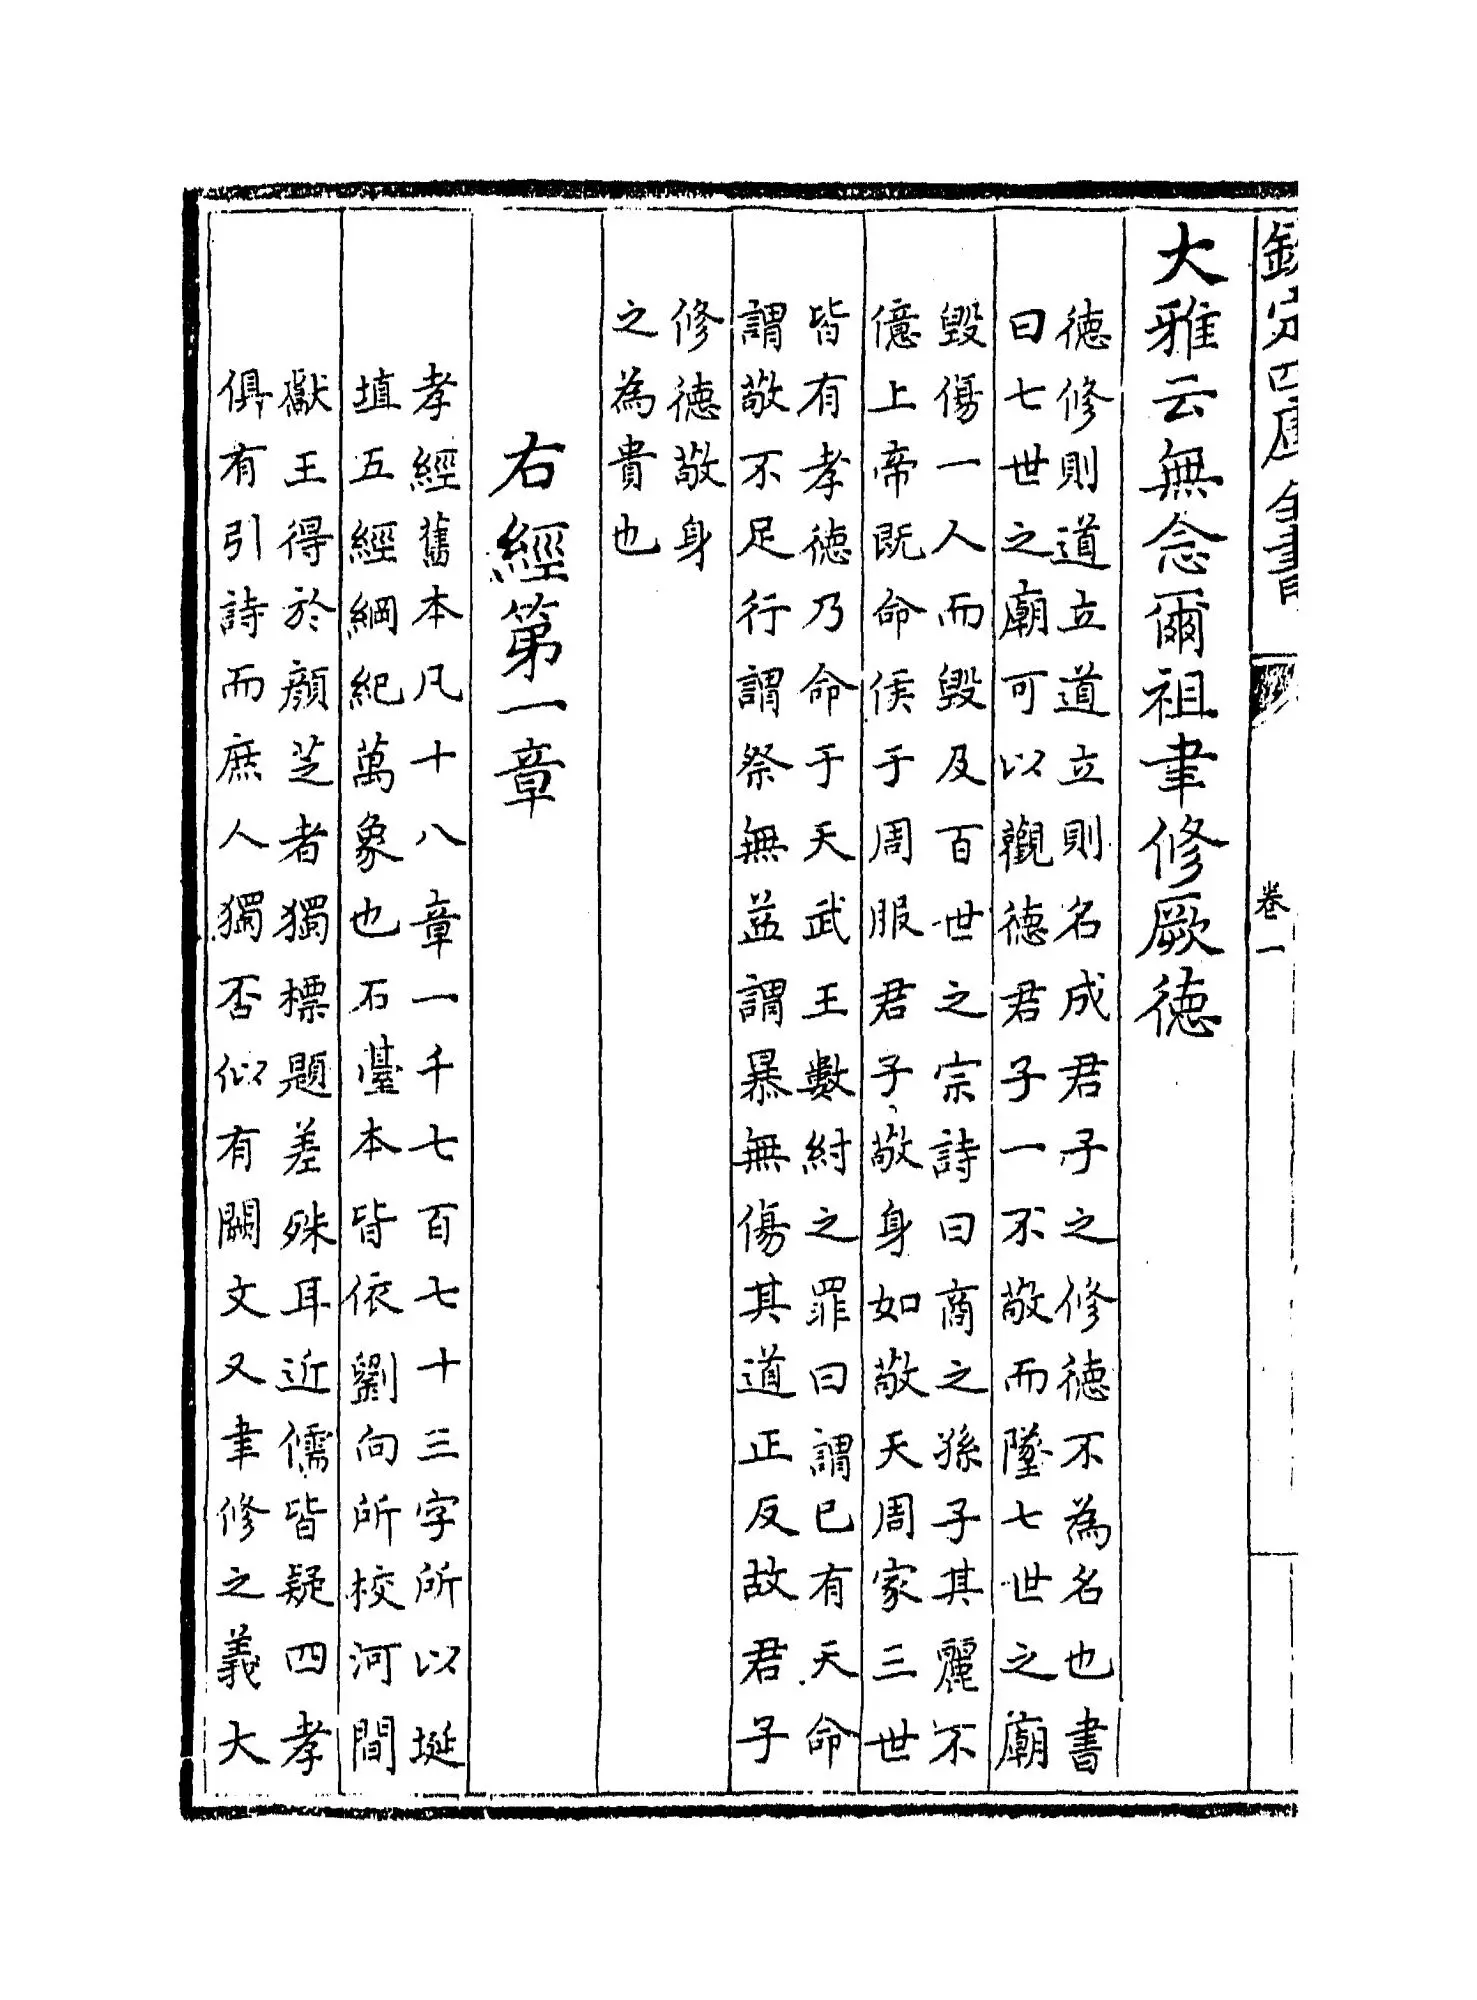 欽定四庫全書
卷一
大雅云無念爾祖聿修厥徳
徳修則道立道立則名成君子之修徳不為名也書
曰七世之廟可以觀徳君子一不敬而墜七世之廟
毀傷一人而毀及百世之宗詩曰商之孫子其麗不
億上帝既命侯于周服君子敬身如敬天周家三世
皆有孝徳乃命于天武王數紂之罪曰謂已有天命
謂敬不足行謂祭無益謂暴無傷其道正反故君子
修徳敬身
之為貴也
右經第一章
孝經舊本凡十八章一千七百七十三字所以埏
埴五經綱紀萬象也石臺本皆依劉向所校河間
獻王得於顔芝者獨標題差殊耳近儒皆疑四孝
俱有引詩而庶人獨否似有闕文又聿修之義大